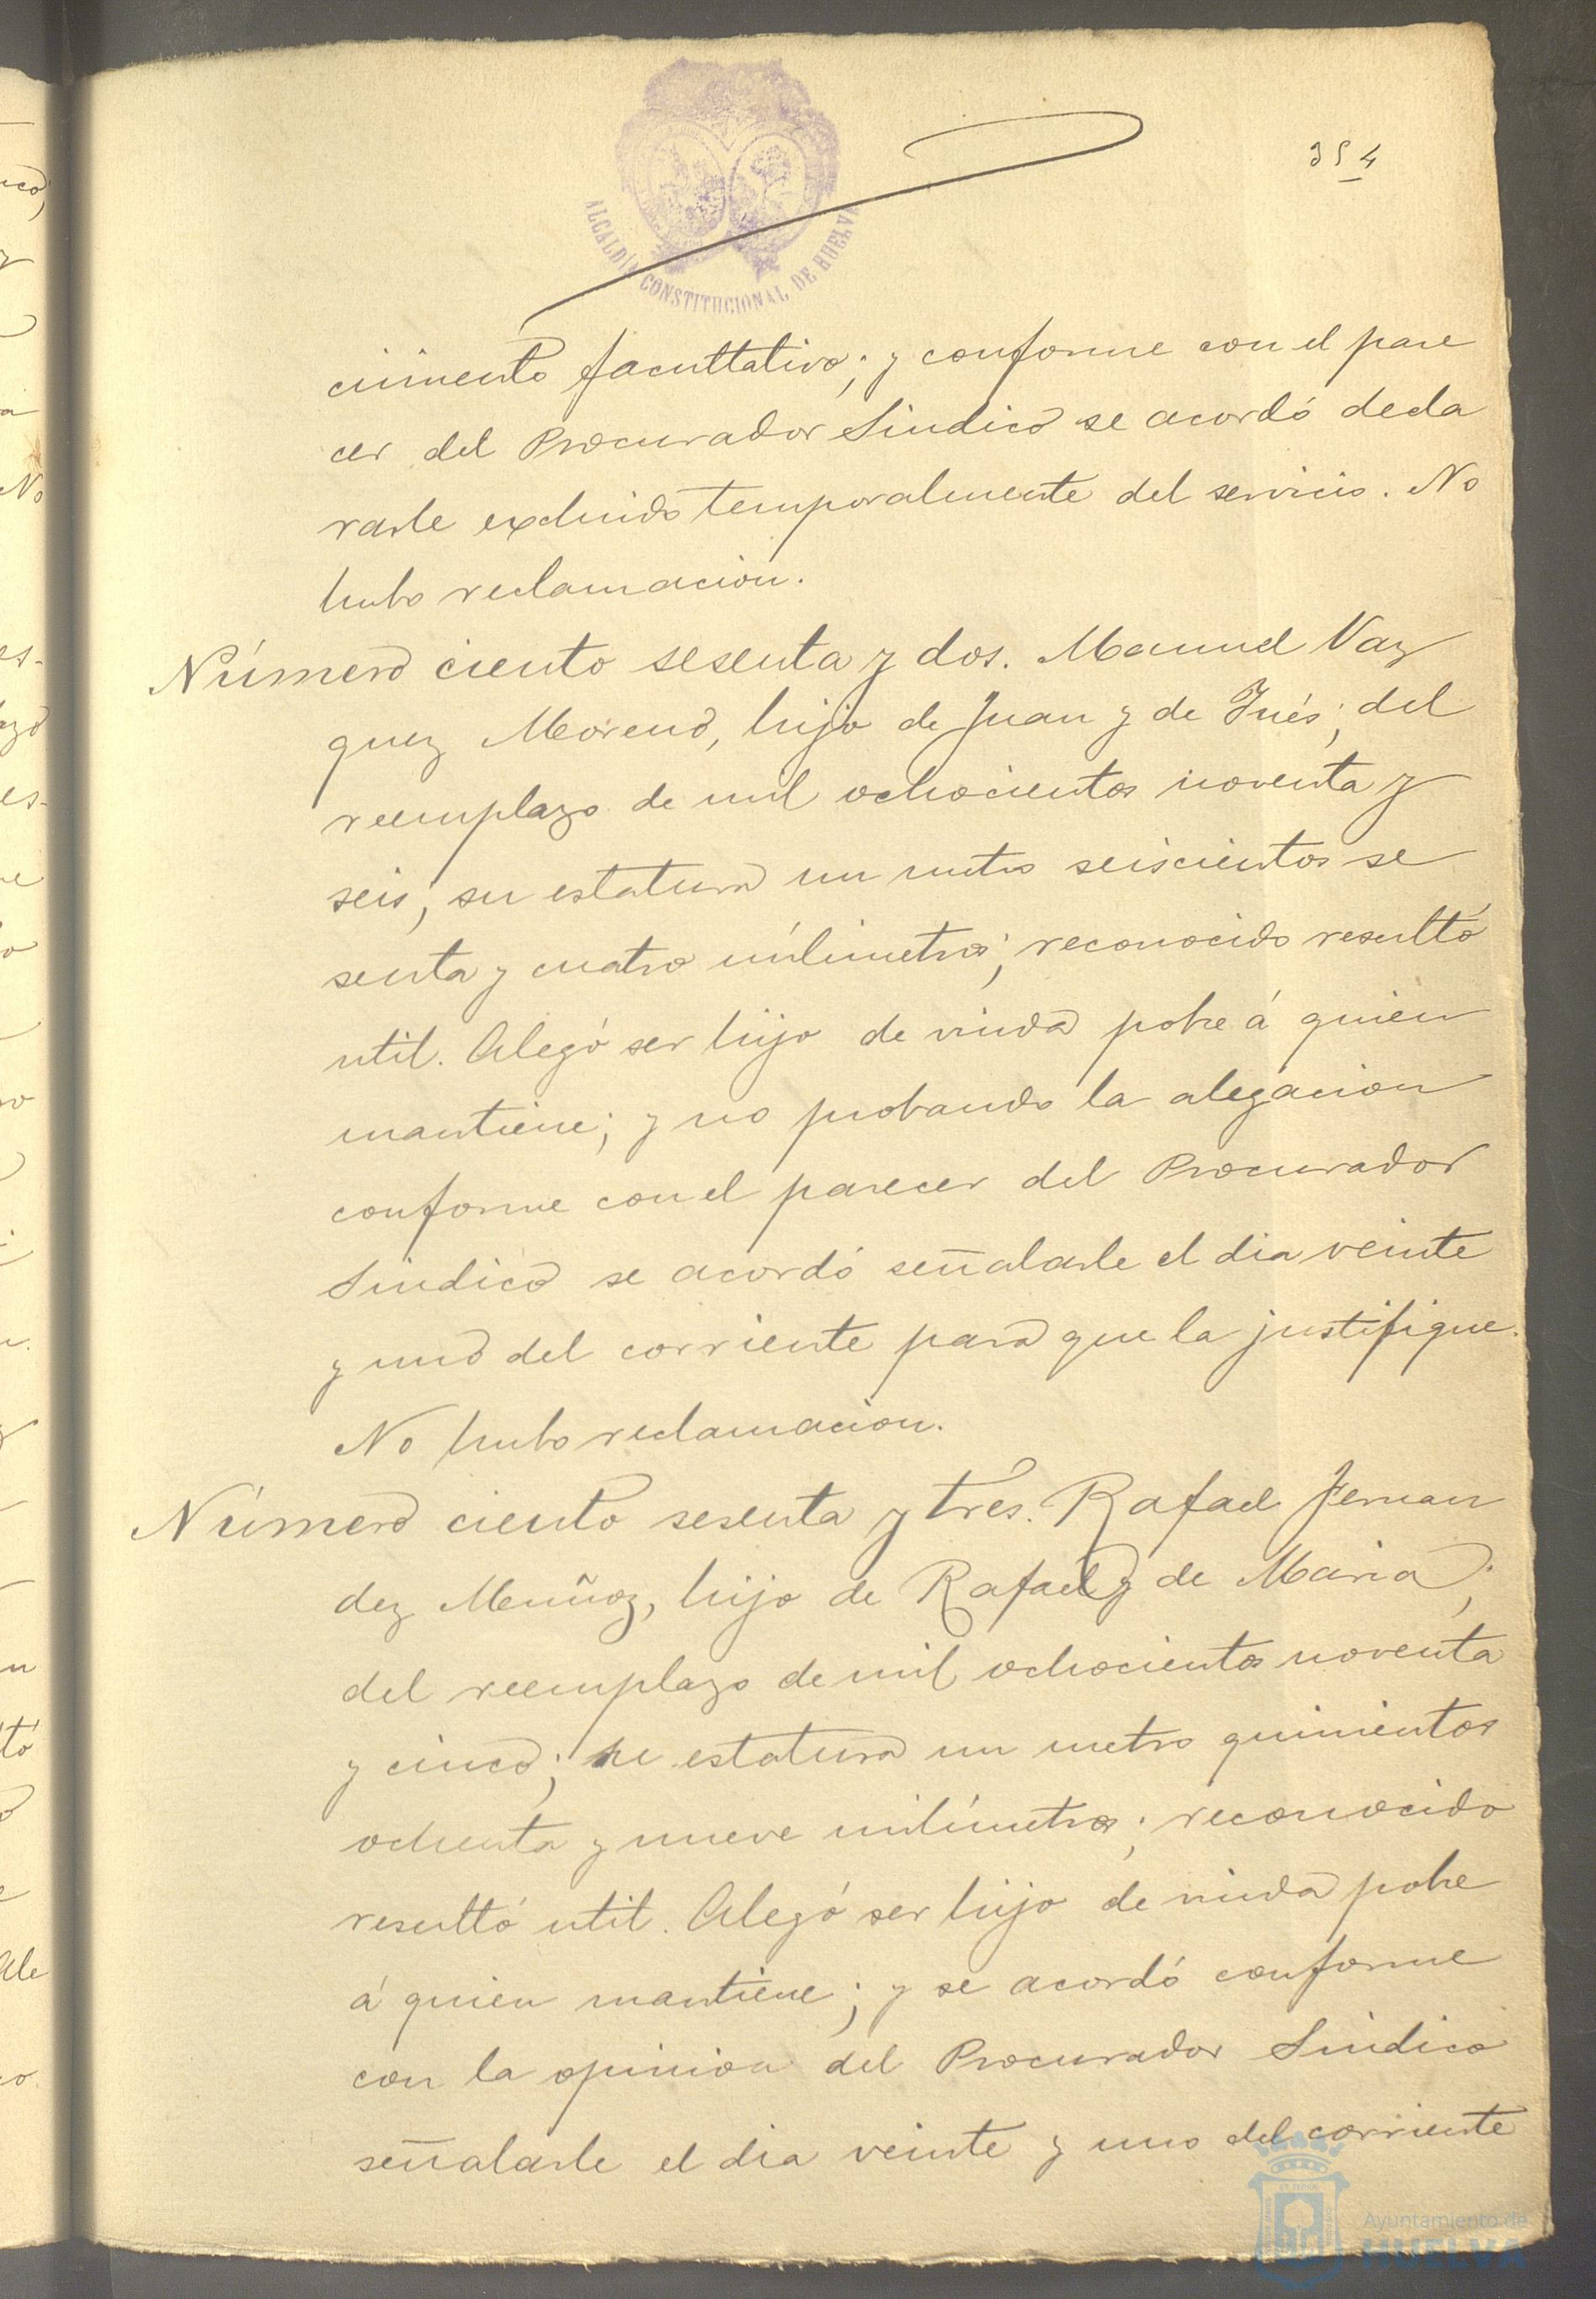 354
ALCALDÍA CONSTITUCIONAL DE HUELVA
cimiento facultativo; y conforme con el pare
cer del Procurador Sindico se acordó decla
rarle excluido temporalmente del servicio. No
hubo reclamacion.
Número ciento sesenta y dos. Manuel Vaz
quez Moreno, hijo de Juan y de Inés; del
reemplazo de mil ochocientos noventa y
seis; su estatura un metro seiscientos se
senta y cuatro milimetros; reconocido resultó
util. Alegó ser hijo de viuda pobre á quien
mantiene; y no probando la alegacion
conforme con el parecer del Procurador
Sindico se acordó señalarle el dia veinte
y uno del corriente para que la justifique.
No hubo reclamacion.
Número ciento sesenta y tres. Rafael Fernan
dez Muñoz, hijo de Rafael y de Maria;
del reemplazo de mil ochocientos noventa
y cinco; su estatura un metro quinientos
ochenta y nueve milímetros; reconocido
resultó util. Alegó ser hijo de viuda pobre
á quien mantiene; y se acordó conforme
con la opinion del Procurador Sindico
señalarle el dia veinte y uno del corriente
Ayuntamiento de
HUELVA